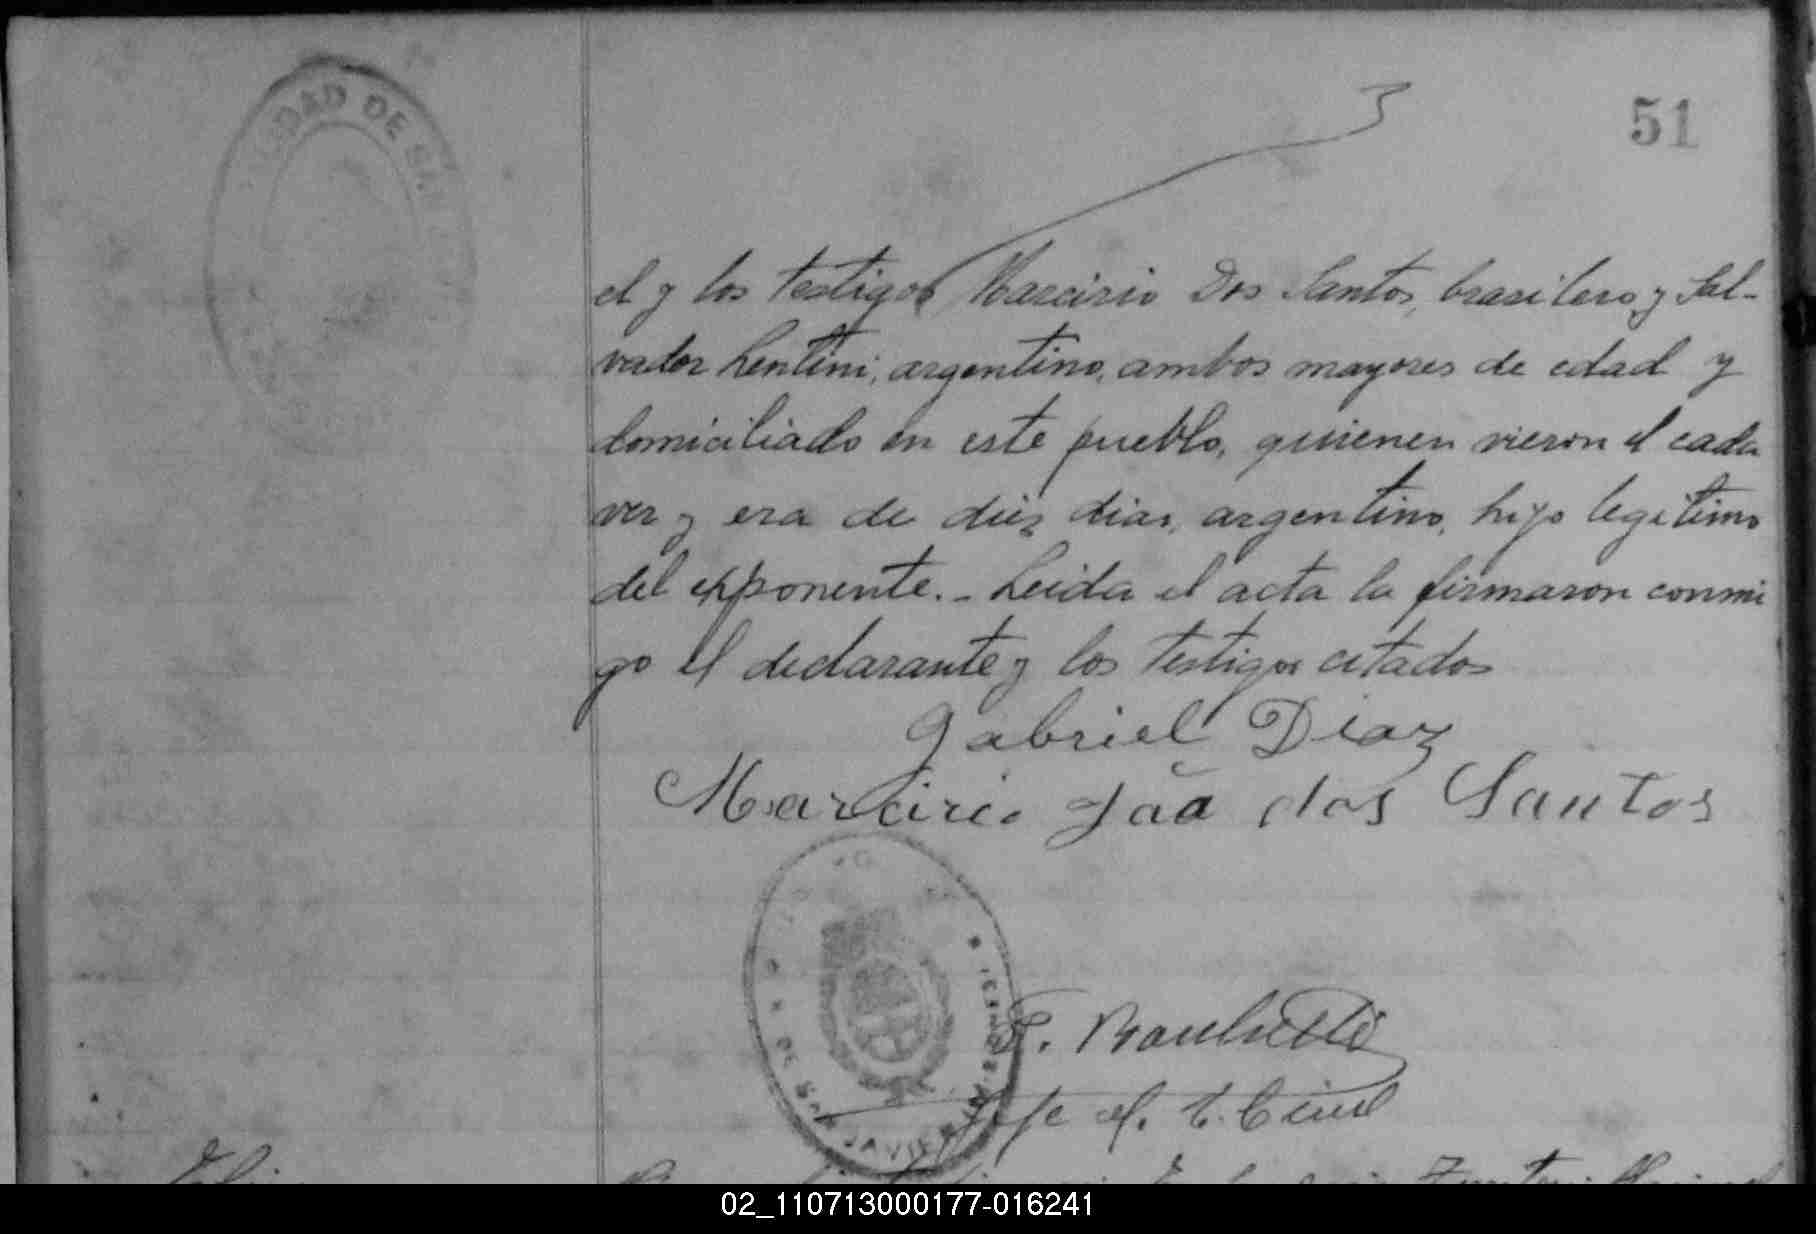 51
DAD DE SAN
el y los testigos Marcirio Dos Santos, brasilero, y Sal-
vador Lentini, argentino, ambos mayores de edad y
domiciliado en este pueblo, quienen vieron el cadá
ver y era de diez dias, argentino, hijo legitimo
del exponente. - Leida el acta la firmaron conmi
go el declarante y los testigos citados
Gabriel Diaz
Marcirio João dos Santos
Jefe del R. Civil
02_110713000177-016241